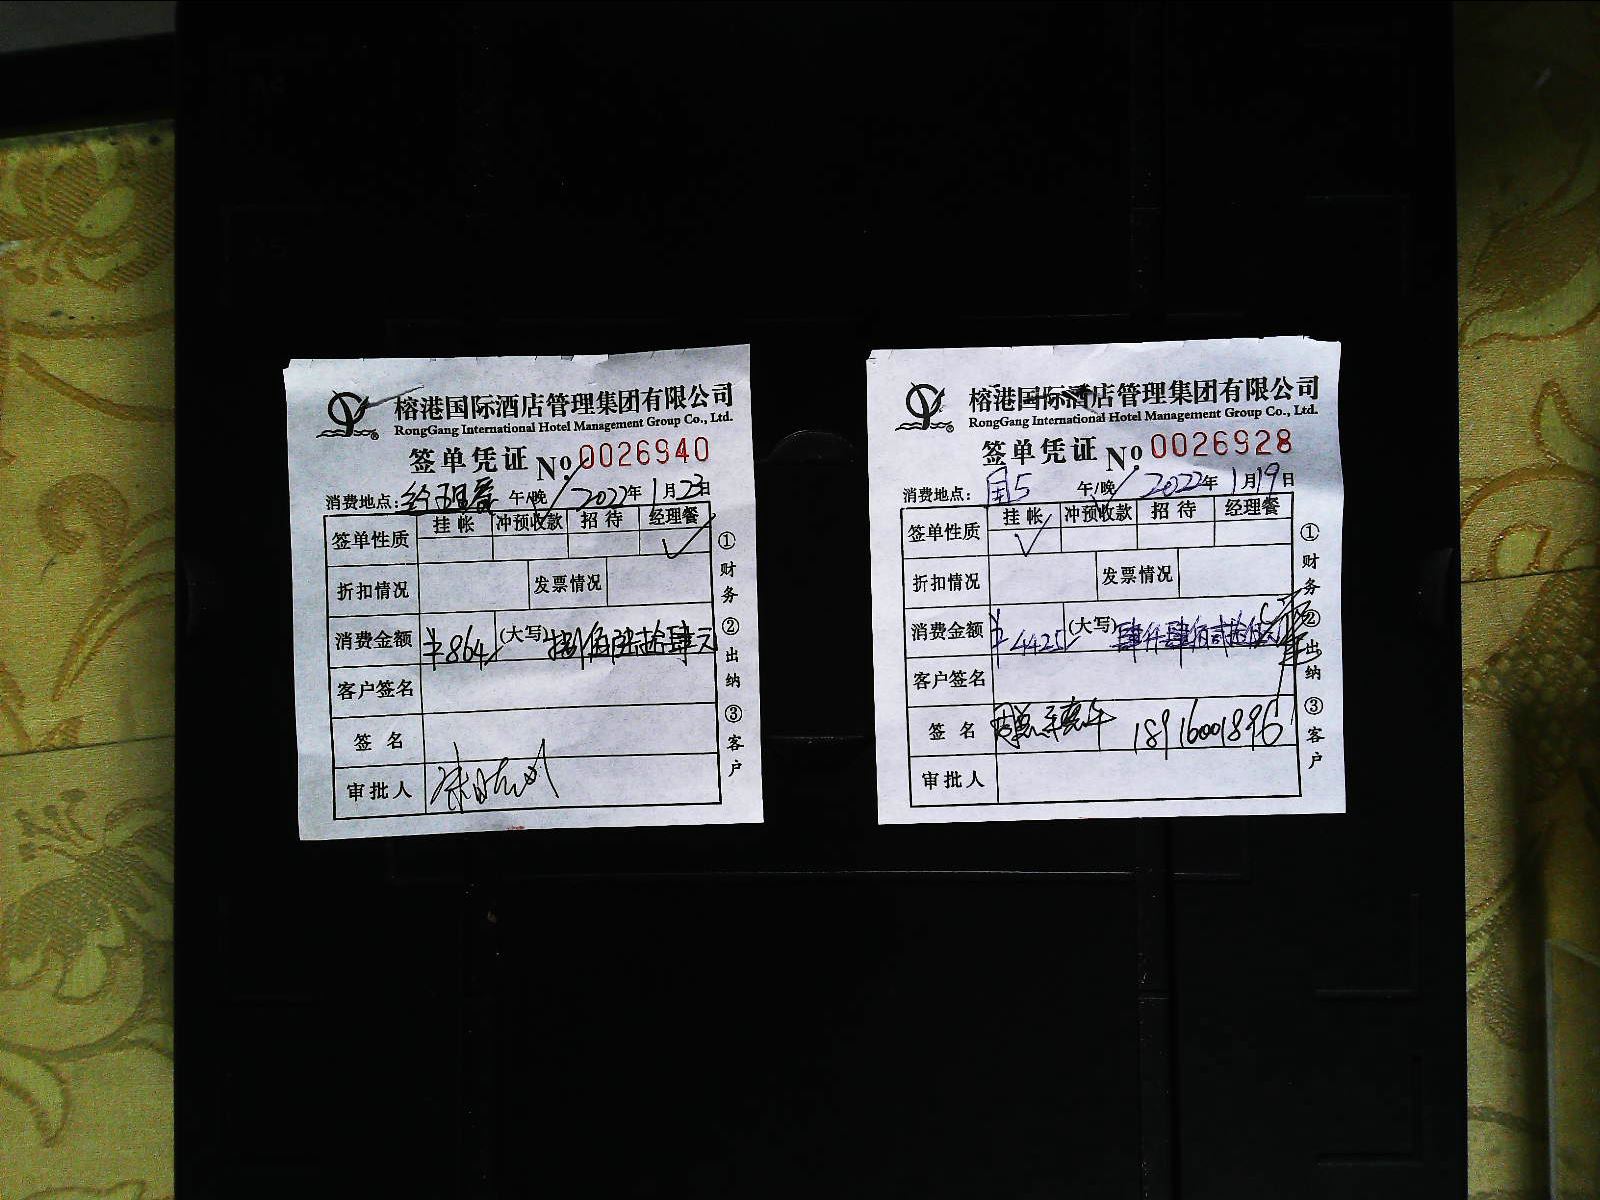 榕港国际酒店管理集团有限公司
RongGang International Hotel Management Group Co., Ltd.
签单凭证 No. 0026940
消费地点: 午/晚 2022年1月23日
签单性质 挂帐 冲预收款 招待 经理餐
✓
折扣情况 发票情况
消费金额 ¥864 (大写) 捌佰陆拾肆元
客户签名
签名
审批人
①财务 ②出纳 ③客户
榕港国际酒店管理集团有限公司
RongGang International Hotel Management Group Co., Ltd.
签单凭证 No. 0026928
消费地点: 国5 午/晚 2022年1月19日
签单性质 挂帐 冲预收款 招待 经理餐
✓
折扣情况 发票情况
消费金额 ¥4425 (大写) 肆仟肆佰贰拾伍元
客户签名
签名 18916001896
审批人
①财务 ②出纳 ③客户